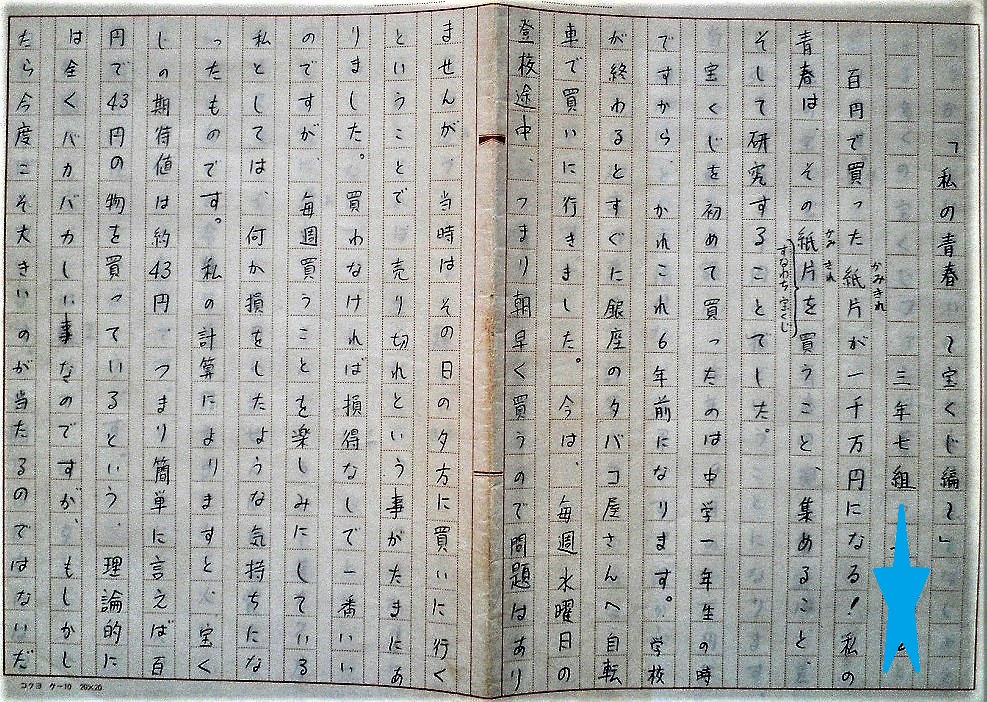 「私の青春 〜宝くじ編〜」
三年七組
百円で買った紙片が一千万円になる!私の
かみきれ
青春は、その紙片を買うこと、集めること、
かみきれ
すなわち宝くじ
そして研究することでした。
宝くじを初めて買ったのは中学一年生の時
ですから、かれこれ6年前になります。学校
が終わるとすぐに銀座のタバコ屋さんへ自転
車で買いに行きました。今は、毎週水曜日の
登校途中、つまり朝早く買うので問題はあり
ませんが、当時はその日の夕方に買いに行く
ということで、売り切れという事がたまにあ
りました。買わなければ損得なしで一番いい
のですが、毎週買うことを楽しみにしている
私としては、何か損をしたような気持ちにな
ったものです。私の計算によりますと、宝く
じの期待値は約43円、つまり簡単に言えば百
円で43円の物を買っているという、理論的に
は全くバカバカしい事なのですが、もしかし
たら今度こそ大きいのが当たるのではないだ
コクヨ ケ-10 20×20